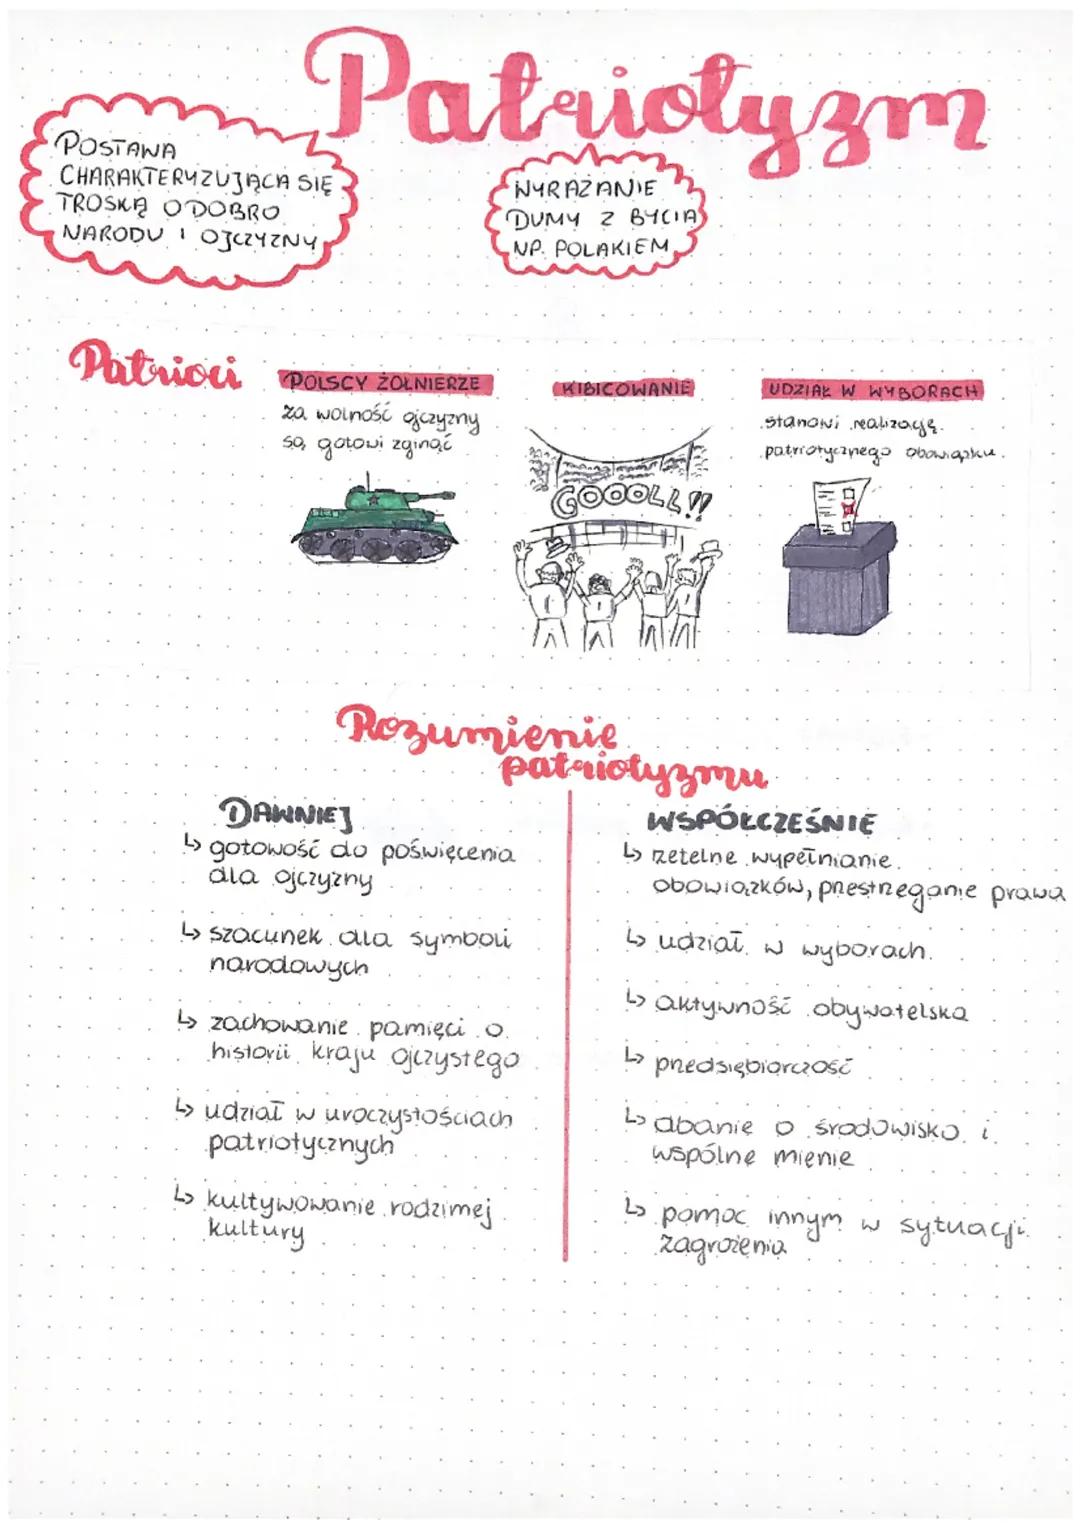 Patriotyzm
POSTAWA
CHARAKTERYZUJĄCA SIĘ
TROSKĄ O DOBRO
NARODU I OJCZYZNY
WYRAŻANIE
DUMY Z BYCIA
NP. POLAKIEM
Patrioci
POLSCY ŻOŁNIERZE
za wolność ojczyzny
są gotowi zginąć
KIBICOWANIE
GOOOLL!!
UDZIAŁ W WYBORACH
stanowi realizację
patriotycznego obowiązku.
Rozumienie
patriotyzmu
DAWNIEJ
↳ gotowość do poświęcenia
dla ojczyzny
↳ szacunek dla symboli
narodowych
↳ zachowanie pamięci o
historii kraju ojczystego
↳ udział w uroczystościach
patriotycznych
↳ kultywowanie rodzimej
kultury
WSPÓŁCZEŚNIE
↳ rzetelne wypełnianie
obowiązków, przestrzeganie prawa
↳ udział w wyborach
↳ aktywność obywatelska
↳ przedsiębiorczość
↳ dbanie o środowisko i
wspólne mienie
↳ pomoc innym w sytuacji
zagrożenia